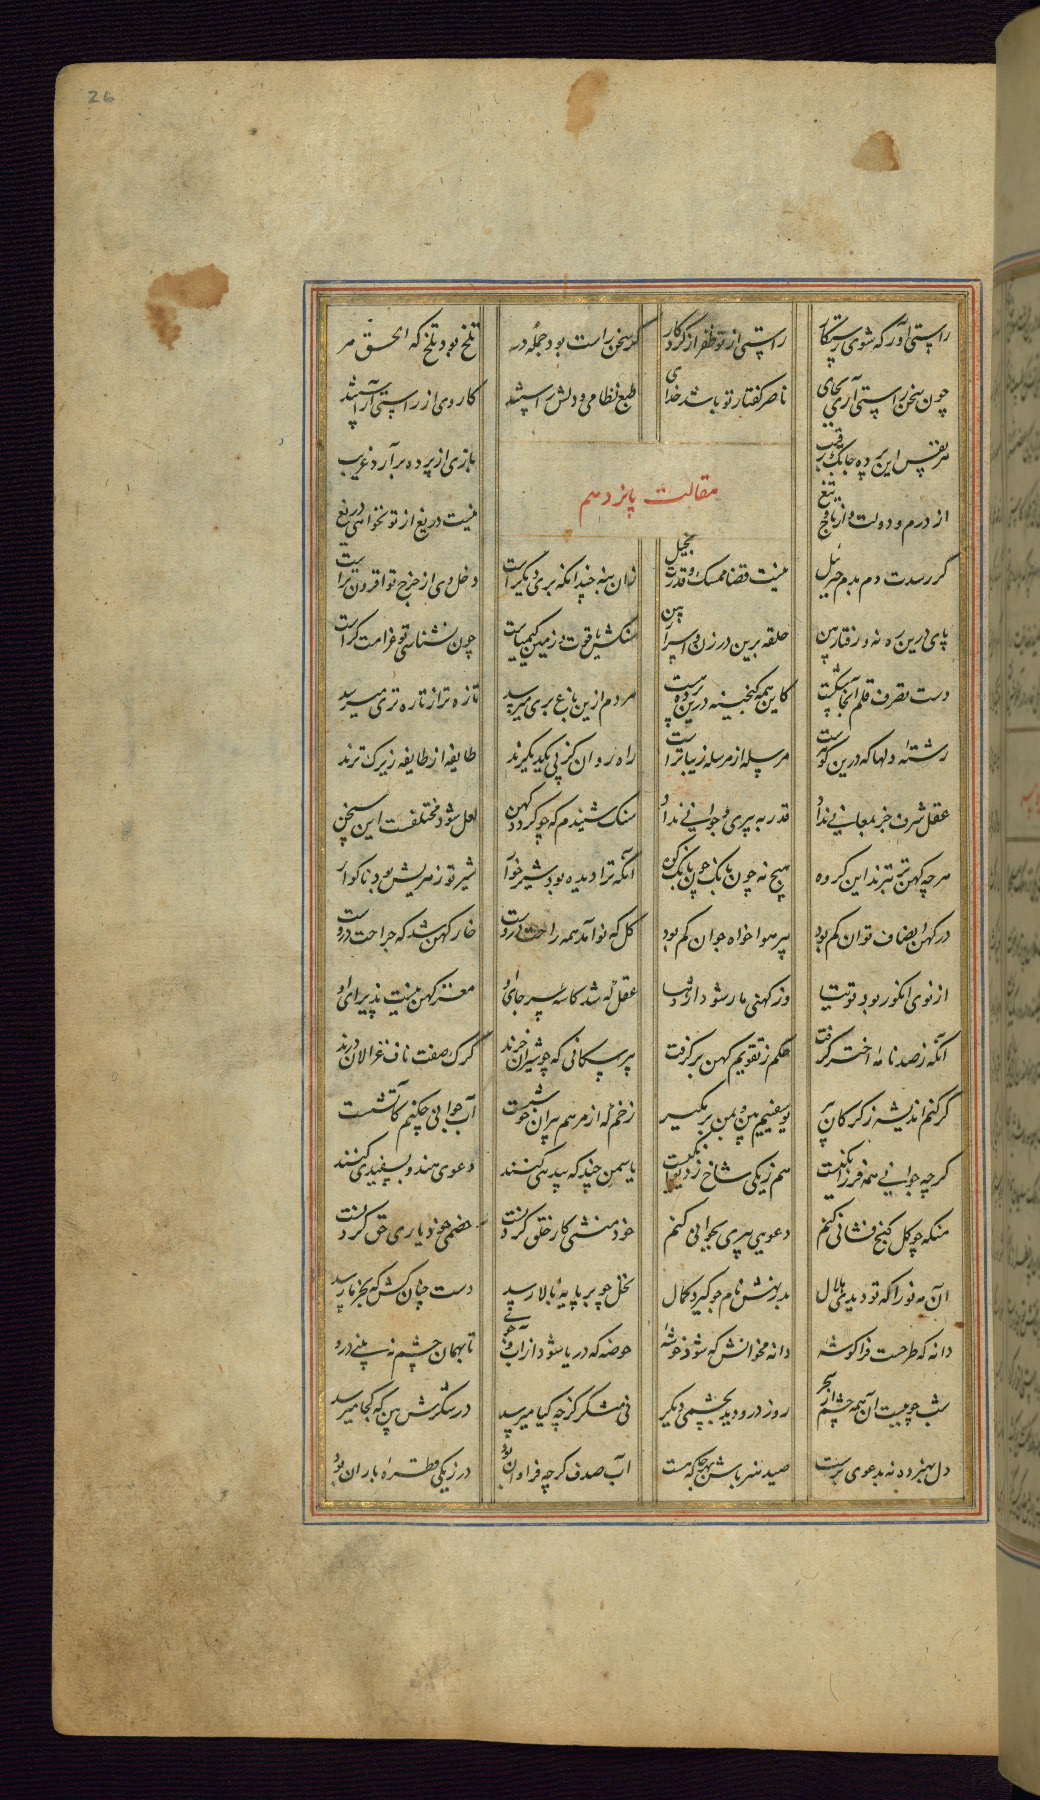 26
راستی آور که شوی رستگار راستی از تو ظفر از کردگار گر سخن راست بود جمله در تلخ بود تلخ که الحق مر
چون سخن راستی آری بجای ناصر گفتار تو باشد خدای طبع نظامی و دلش راستند کار وی از راستی آراستند
هر نفس این پرده چابک رقیب بازی از پرده برآرد غریب
مقالت پانزدهم
از درم و دولت و از تاج و تیغ نیست دریغ از تو نخواهی دریغ
گر رسدت دم بدم جبرئیل نیست قضا ممسک و قدرت بخیل زان بنه چندانکه بری دیگر است دخل وی از خرج تو افزون تر است
پای درین ره نه و رفتار بین حلقه برین در زن و اسرار بین سنگش یاقوت و زمین کیمیاست چون نشناسی تو غرامت کراست
دست تصرف قلم اینجا شکست کاین همه گنجینه درین ده هست مردم ازین باغ بری میرسد تازه تر از تازه تری میرسد
رشتهٔ دلها که درین گوهر است مرسله از مرسله زیباتر است راه روان کز پی یکدیگرند طایفه از طایفه زیرک ترند
عقل شرف جز بمعانی نداد قدر به پیری و جوانی نداد سنک شنیدم که چو گردد کهن لعل شود مختلفست این سخن
هرچه کهن تر بترند این گروه هیچ نه چون بانک چو بانک کوه آنکه ترا دیده بود شیرخوار شیر تو زهریش بود ناگوار
در کهن انصاف توان کم بود پیر هواخواه جوان کم بود گل که نو آمد همه راحت دروست خار کهن شد که جراحت دروست
از نوی انگور بود توتیا وز کهنی مار شود اژدها عقل که شد کاسه سر جای او مغز کهن نیست پذیرای او
آنکه رصد نامه اختر گرفت حکم ز تقویم کهن برگرفت پیر سگانی که چو شیران خرند گرگ صفت ناف غزالان درند
گر کنم اندیشه ز گرگان پیر یوسفیم بین و بمن بر مگیر زخم که از مرهم پیران خوشست آب جوانی چکنم کاتشست
گرچه جوانی همه فرزانگیست هم ز یکی شاخ ز دیوانگیست یاسمن چند که بیدی کنند دعوی هندو بسپیدی کنند
منکه چو گل گنج فشانی کنم دعوی پیری بجوانی کنم خود منشی کار خلق کردنست خصمی خود یاری حق کردنست
آن مه نو را که تو دیدی هلال بدر نهش نام چو گیرد کمال نخل چو بر پایه بالا رسد دست چنان کش که بخرما رسد
دانه که طرحست فرا گوشهٔ دانه مخوانش که شود خوشهٔ حوضه که دریا شود از آب جوی تا بهمان چشم نه بینی درو
شب چو ببست آن همه چشم از سحر روز درو دید بچشمی دگر نی مشکر گرچه گیا میرسد در شکرش بین که کجا میرسد
دل بهنر ده نه بدعوی پرست صید هنر باش بهرجا که هست آب صدف گرچه فراوان بود در ز یکی قطرهٔ باران بود